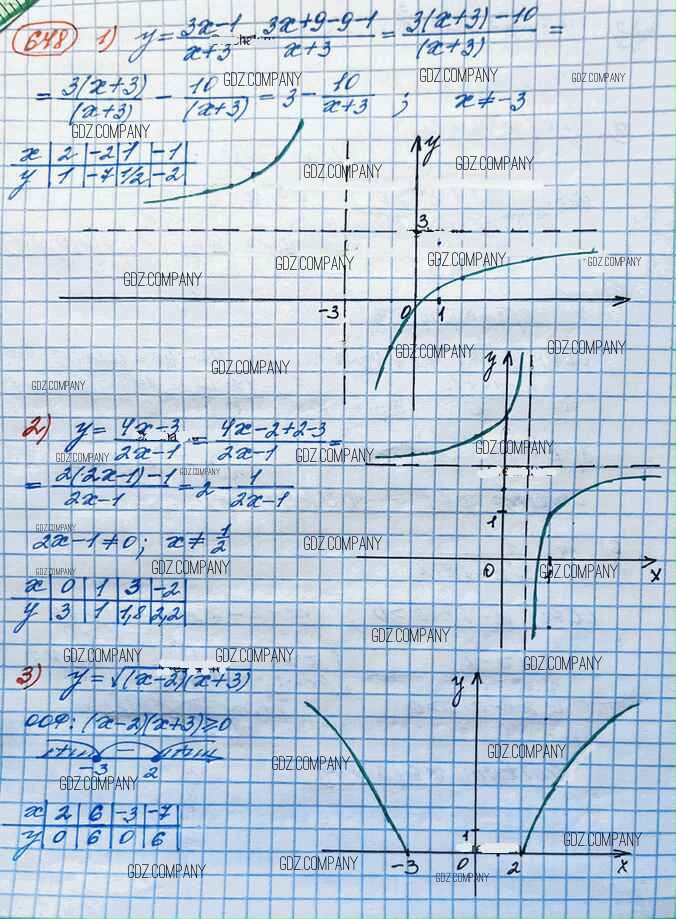 648 1) y = (3x-1)/(x+3) = (3x+9-9-1)/(x+3) = (3(x+3)-10)/(x+3) =
GDZ.COMPANY GDZ.COMPANY GDZ.COMPANY
= (3(x+3))/(x+3) - 10/(x+3) = 3 - 10/(x+3) ; x ≠ -3
GDZ.COMPANY
x | 2 | -2 | 1 | -1
y | 1 | -7 | 1/2 | -2
y
GDZ.COMPANY GDZ.COMPANY
3
GDZ.COMPANY GDZ.COMPANY GDZ.COMPANY GDZ.COMPANY
-3 0 1
GDZ.COMPANY GDZ.COMPANY
GDZ.COMPANY GDZ.COMPANY
y
2) y = (4x-3)/(2x-1) = (4x-2+2-3)/(2x-1) =
GDZ.COMPANY GDZ.COMPANY GDZ.COMPANY
= (2(2x-1)-1)/(2x-1) = 2 - 1/(2x-1)
GDZ.COMPANY
1
GDZ.COMPANY
2x-1 ≠ 0 ; x ≠ 1/2
GDZ.COMPANY
GDZ.COMPANY GDZ.COMPANY GDZ.COMPANY
0 x
x | 0 | 1 | 3 | -2
y | 3 | 1 | 1,8 | 2,2
GDZ.COMPANY
GDZ.COMPANY GDZ.COMPANY GDZ.COMPANY
3) y = √(x-2)(x+3)
y
ООФ: (x-2)(x+3) ≥ 0
+ - +
-3 2
GDZ.COMPANY GDZ.COMPANY GDZ.COMPANY
x | 2 | 6 | -3 | -7
y | 0 | 6 | 0 | 6
1
GDZ.COMPANY
-3 0 2 x
GDZ.COMPANY GDZ.COMPANY GDZ.COMPANY